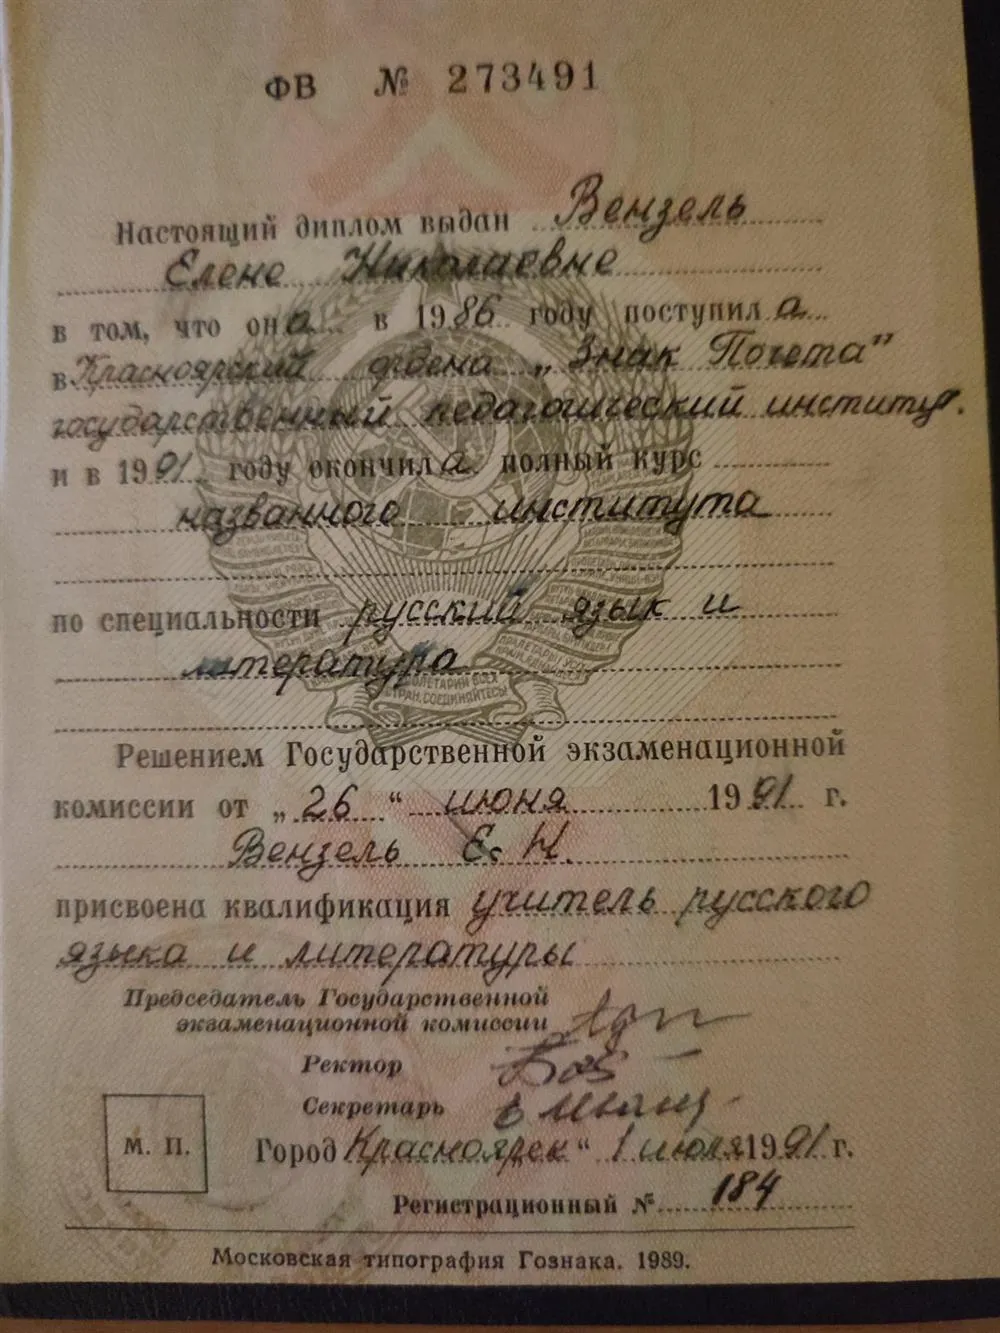 ФВ № 273491
Настоящий диплом выдан Вензель
Елене Николаевне
в том, что она в 1986 году поступила
в Красноярский ордена „Знак Почета"
государственный педагогический институт.
и в 1991 году окончила полный курс
названного института
по специальности русский язык и
литература
ПРОЛЕТАРИИ ВСЕХ
СТРАН, СОЕДИНЯЙТЕСЬ!
Решением Государственной экзаменационной
комиссии от „26" июня 1991 г.
Вензель Е. Н.
присвоена квалификация учитель русского
языка и литературы
Председатель Государственной
экзаменационной комиссии
Ректор
Секретарь
М. П.
Город Красноярск " 1 июля 1991 г.
Регистрационный № 184
Московская типография Гознака. 1989.